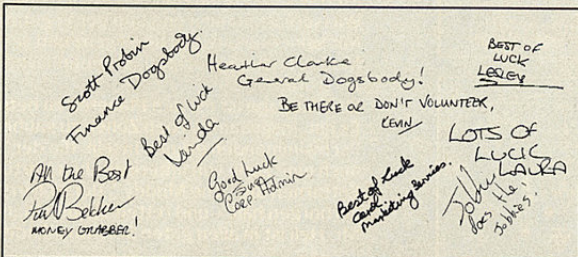 Scott Probin
Finance Dogsbody.
Heather Clarke
General Dogsbody!
BEST OF
LUCK
LESLEY
Best of luck
Linda
BE THERE OR DON'T VOLUNTEER,
KEVIN
LOTS OF
LUCK
LAURA
All the Best
Paul Bekker
MONEY GRABBER!
Good Luck
Corp Admin.
Best of Luck
Carol
Marketing Services.
does the
Jobbies!